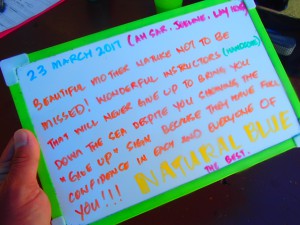 23 MARCH 2017 (AH GAR, JOELINE, LAY HOON)
BEAUTIFUL MOTHER NATURE NOT TO BE
MISSED! WONDERFUL INSTRUCTORS (HANDSOME)
THAT WILL NEVER GIVE UP TO BRING YOU
DOWN THE SEA DESPITE YOU SHOWING THE
"GIVE UP" SIGN BECAUSE THEY HAVE FULL
CONFIDENCE IN EACH AND EVERYONE OF
YOU!!! NATURAL BLUE
THE BEST.